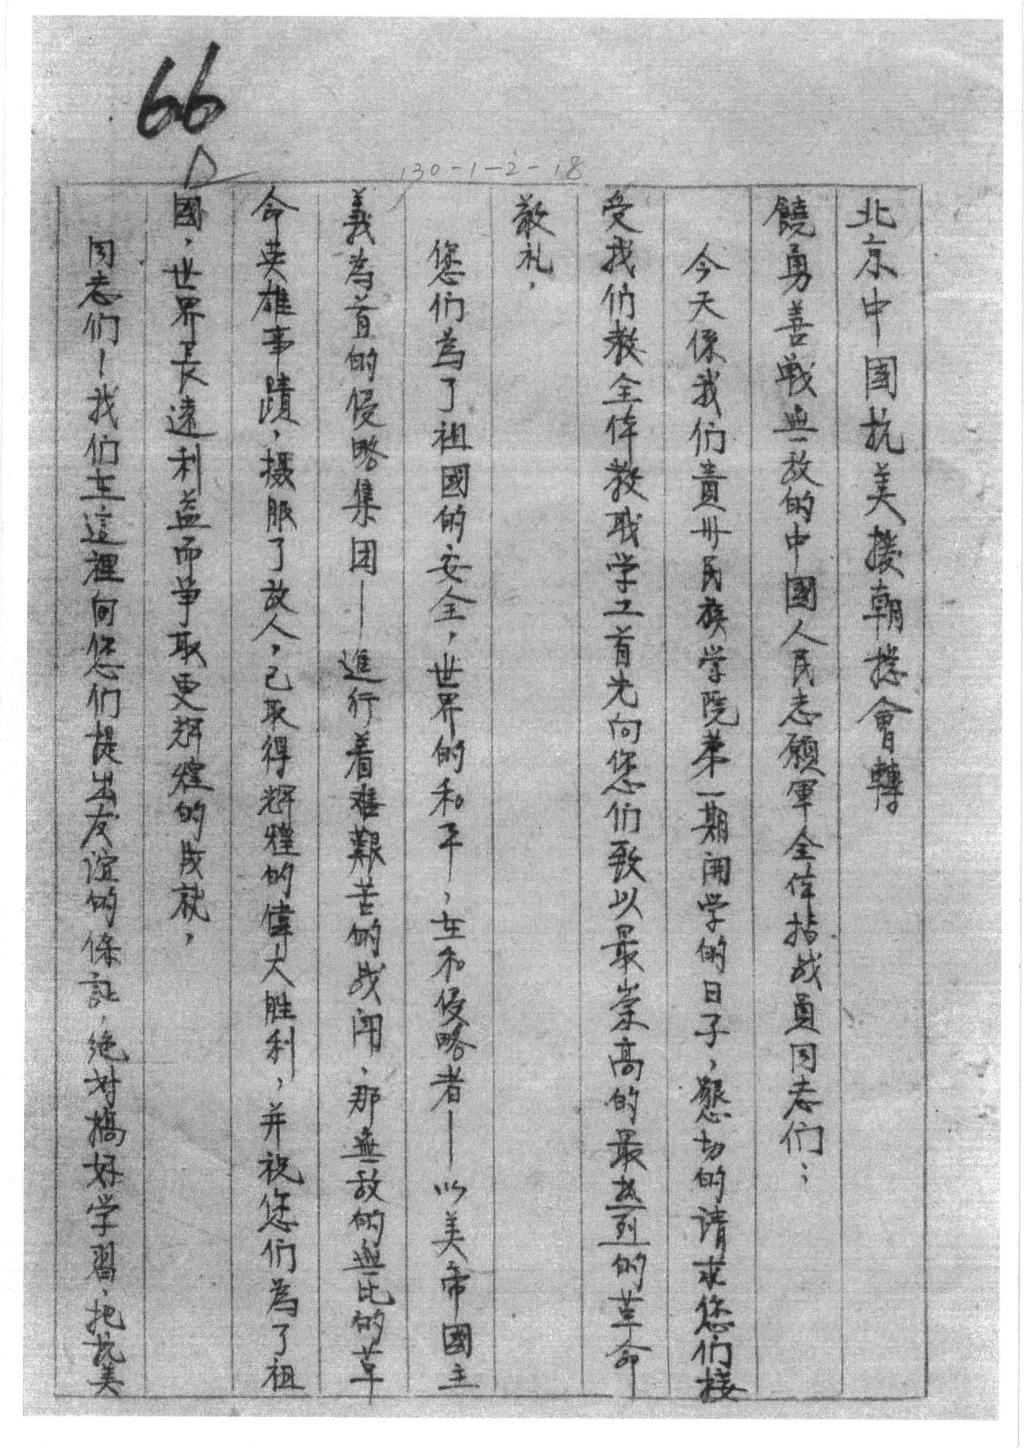 66
130-1-2-18
北京中國抗美援朝總會轉
饒勇善戰無敌的中國人民志願軍全体指战員同志们：
今天係我们貴州民族学院第一期開学的日子，懇切的请求您们接
受我们教全体教职学工首先向您们致以最崇高的最热烈的革命
敬礼，
您们為了祖國的安全，世界的和平，在和侵略者—以美帝國主
義為首的侵略集团—進行着难艱苦的战闘，那無敌的無比的革
命英雄事蹟，摄服了敌人，已取得辉煌的偉大胜利，并祝您们為了祖
國，世界長遠利益而爭取更辉煌的成就，
同志们！我们在這裡向您们提出友谊的保証，绝对搞好学習，把抗美